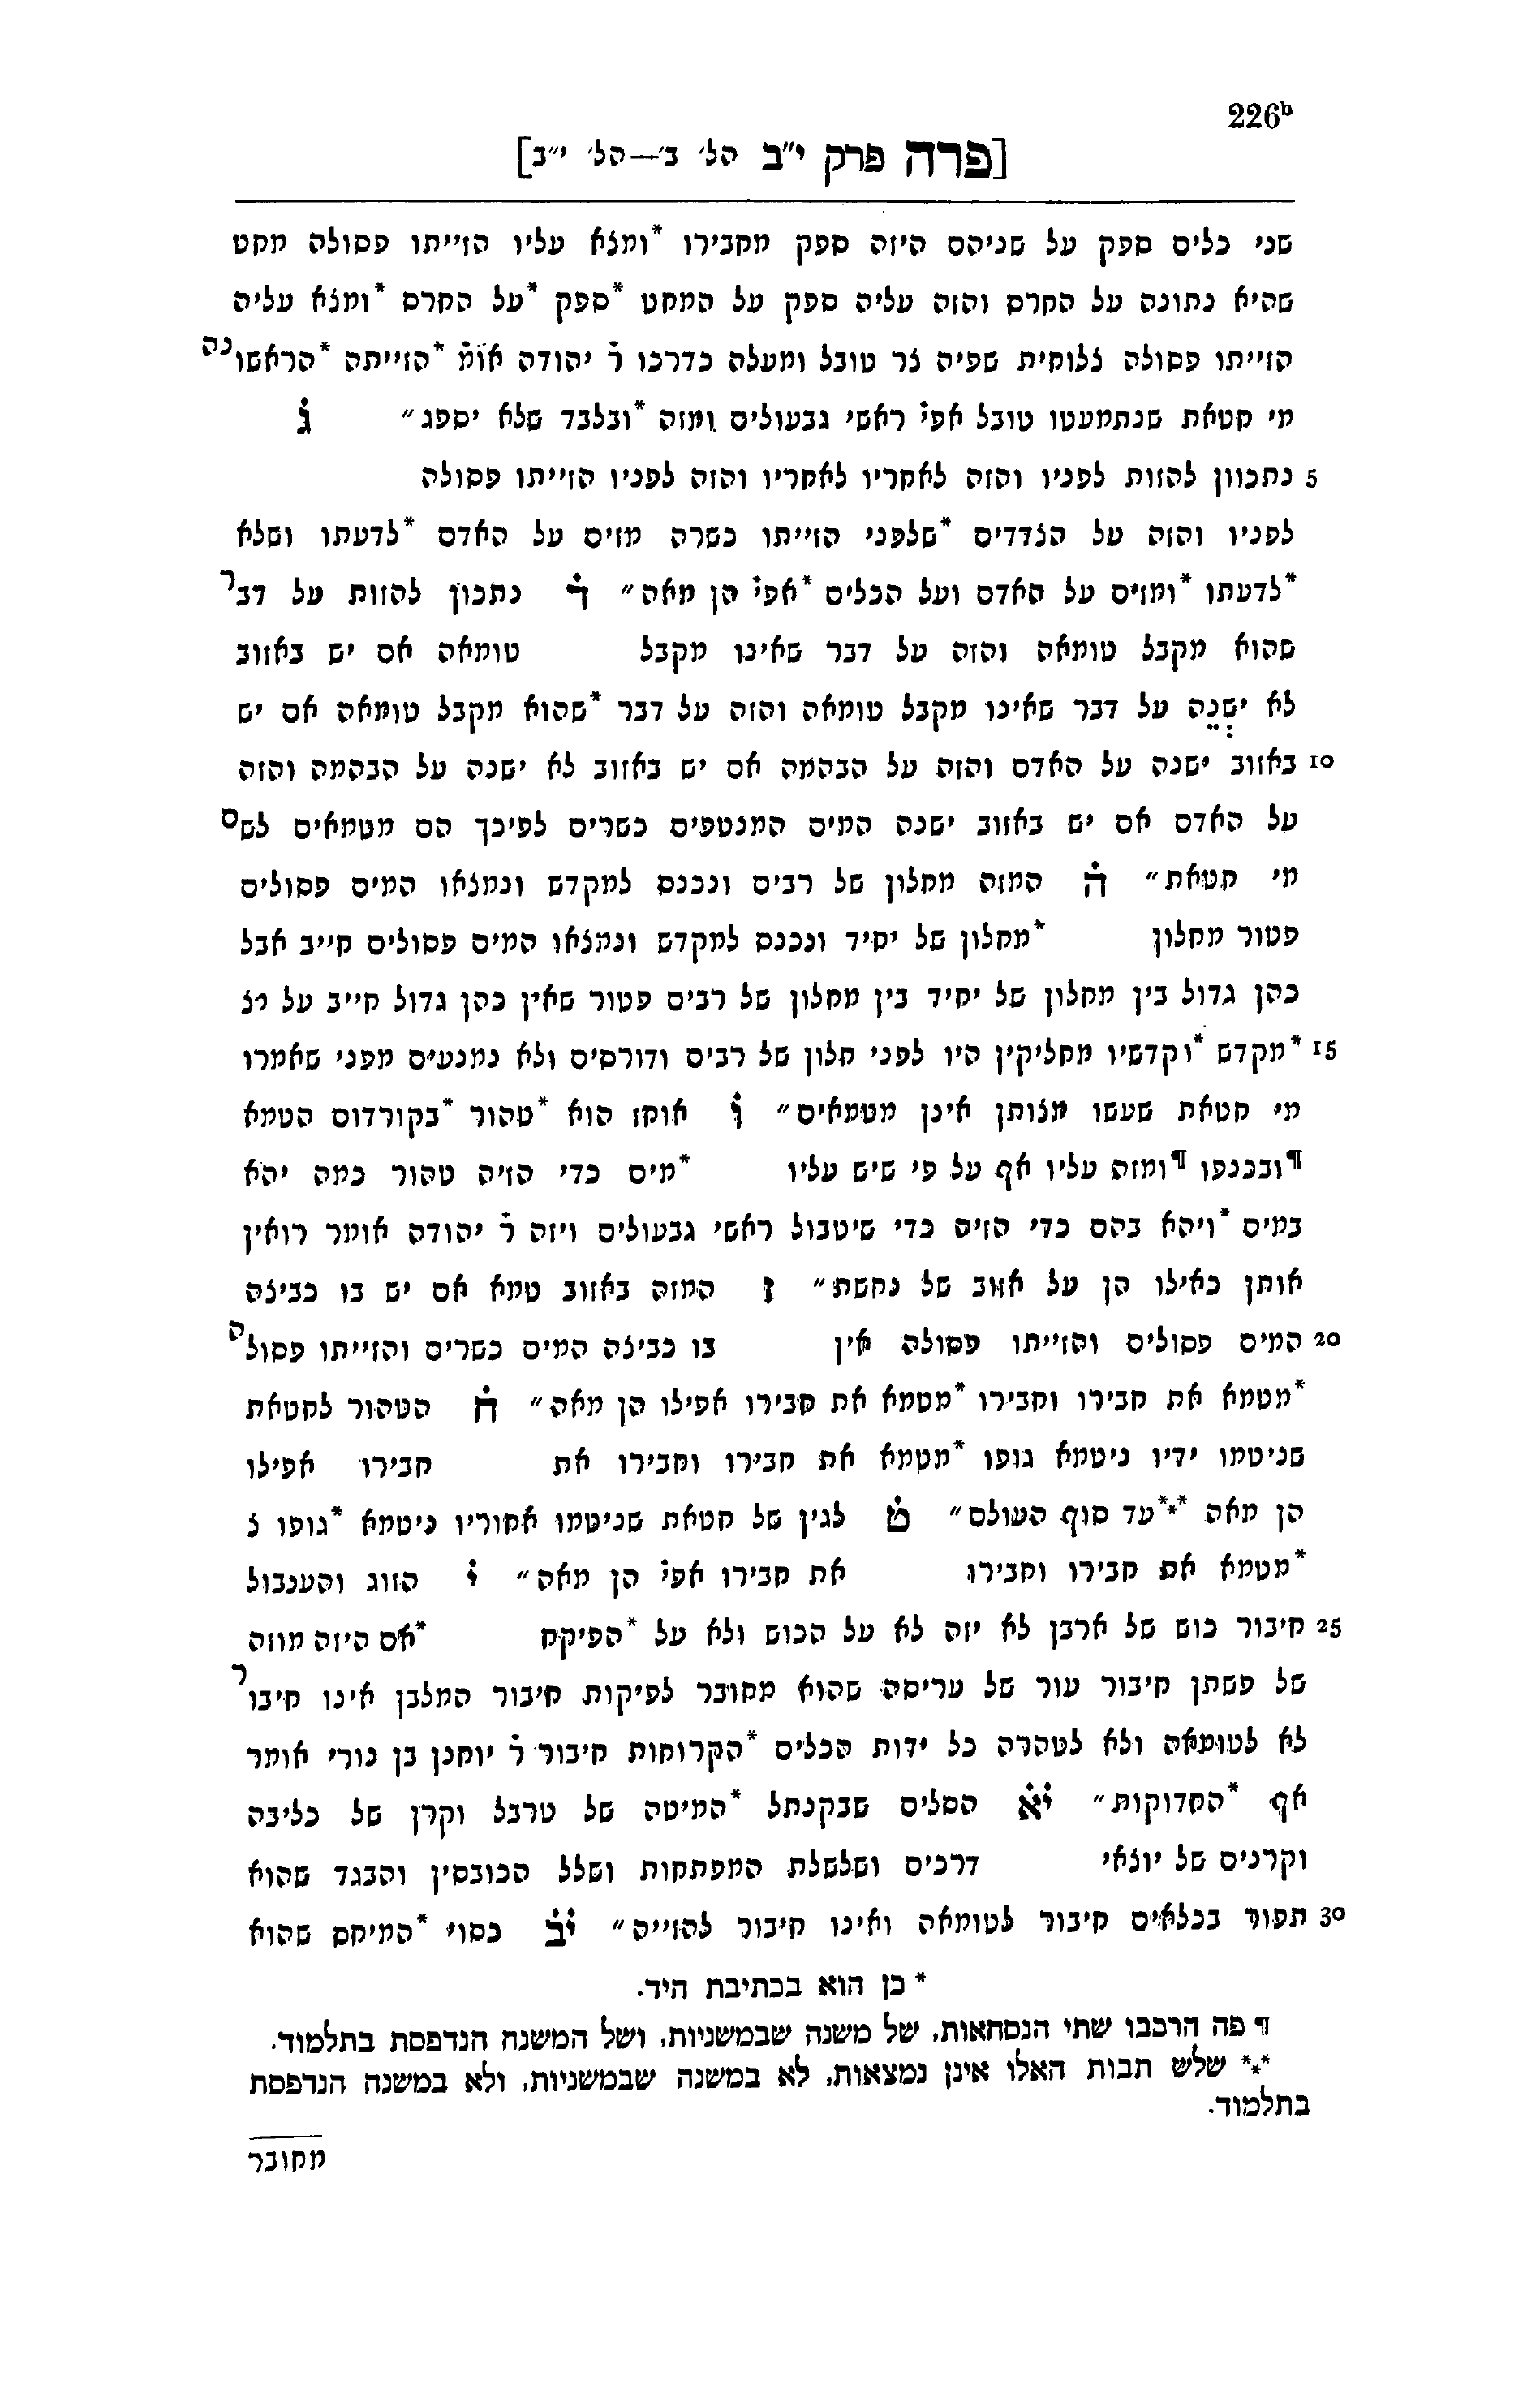 226ᵇ
[פרה פרק י״ב הל׳ ב׳—הל׳ י״ב]
שני כלים ספק על שניהם היזה ספק מחבירו *ומצא עליו הזייתו פסולה מחט
שהיא נתונה על החרס והזה עליה ספק על המחט *ספק *על החרס *ומצא עליה
הזייתו פסולה צלוחית שפיה צר טובל ומעלה כדרכו ר׳ יהודה אומ׳ *הזייתה *הראשונה
מי חטאת שנתמעטו טובל אפי׳ ראשי גבעולים ומזה *ובלבד שלא יספג״ ג
5 נתכוון להזות לפניו והזה לאחריו לאחריו והזה לפניו הזייתו פסולה
לפניו והזה על הצדדים *שלפני הזייתו כשרה מזים על האדם *לדעתו ושלא
*לדעתו *ומזים על האדם ועל הכלים *אפי׳ הן מאה״ ד נתכון להזות על דבר
שהוא מקבל טומאה והזה על דבר שאינו מקבל טומאה אם יש באזוב
לא ישְנֵה על דבר שאינו מקבל טומאה והזה על דבר *שהוא מקבל טומאה אם יש
10 באזוב ישנה על האדם והזה על הבהמה אם יש באזוב לא ישנה על הבהמה והזה
על האדם אם יש באזוב ישנה המים המנטפים כשרים לפיכך הם מטמאים לשם
מי חטאת״ ה המזה מחלון של רבים ונכנס למקדש ונמצאו המים פסולים
פטור מחלון *מחלון של יחיד ונכנס למקדש ונמצאו המים פסולים חייב אבל
כהן גדול בין מחלון של יחיד בין מחלון של רבים פטור שאין כהן גדול חייב על
15 *מקדש *וקדשיו מחליקין היו לפני חלון של רבים ודורסים ולא נמנעים מפני שאמרו
מי חטאת שעשו מצותן אינן מטמאים״ ו אוחז הוא *טהור *בקורדום הטמא
¶ובכנפו ¶ומזה עליו אף על פי שיש עליו *מים כדי הזיה טהור כמה יהא
במים *ויהא בהם כדי הזיה כדי שיטבול ראשי גבעולים ויזה ר׳ יהודה אומר רואין
אותן כאילו הן על אזוב של נחשת״ ז המזה באזוב טמא אם יש בו כביצה
20 המים פסולים והזייתו פסולה אין בו כביצה המים כשרים והזייתו פסולה
*מטמא את חבירו וחבירו *מטמא את חבירו אפילו הן מאה״ ח הטהור לחטאת
שניטמו ידיו ניטמא גופו *מטמא את חבירו וחבירו את חבירו אפילו
הן מאה *⁎*עד סוף העולם״ ט לגין של חטאת שניטמו אחוריו ניטמא *גופו צ
*מטמא את חבירו וחבירו את חבירו אפי׳ הן מאה״ י הזוג והענבול
25 חיבור כוש של ארבן לא יזה לא על הכוש ולא על *הפיקח *אם היזה מוזה
של פשתן חיבור עור של עריסה שהוא מחובר לפיקות חיבור המלבן אינו חיבור
לא לטומאה ולא לטהרה כל ידות הכלים *הקרוחות חיבור ר׳ יוחנן בן נורי אומר
אף *החדוקות״ יא הסלים שבקנתל *המיטה של טרבל וקרן של כליבה
וקרנים של יוצאי דרכים ושלשלת המפתחות ושלל הכובסין והבגד שהוא
30 תפור בכלאים חיבור לטומאה ואינו חיבור להזייה״ יב כסוי *המיחם שהוא
* כן הוא בכתיבת היד.
¶ פה הרכבו שתי הנסחאות, של משנה שבמשניות, ושל המשנה הנדפסת בתלמוד.
*⁎* שלש תבות האלו אינן נמצאות, לא במשנה שבמשניות, ולא במשנה הנדפסת
בתלמוד.
מחובר